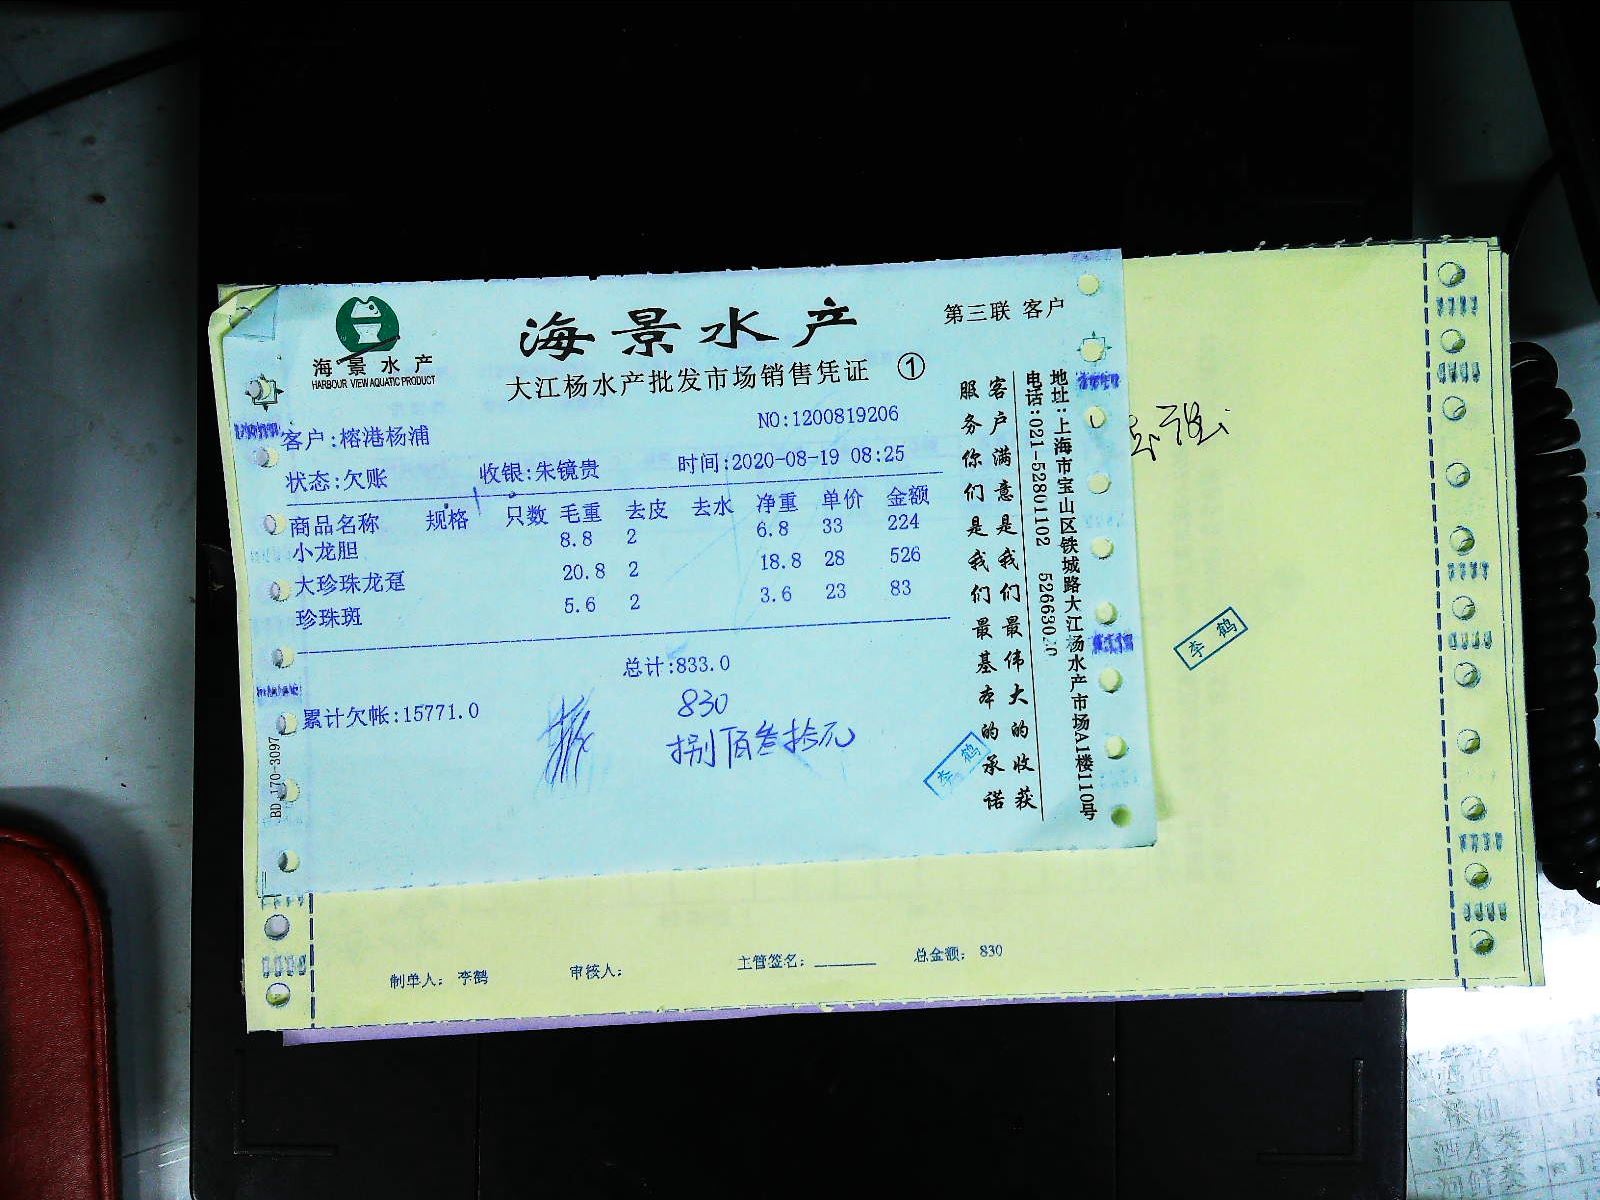 海景水产
HARBOUR VIEW AQUATIC PRODUCT
海景水产
第三联 客户
大江杨水产批发市场销售凭证 ①
NO:1200819206
客户:榕港杨浦
状态:欠账 收银:朱镜贵 时间:2020-08-19 08:25
商品名称 规格 只数 毛重 去皮 去水 净重 单价 金额
小龙胆 8.8 2 6.8 33 224
大珍珠龙趸 20.8 2 18.8 28 526
珍珠斑 5.6 2 3.6 23 83
总计:833.0
累计欠帐:15771.0
830
捌佰叁拾元
客户满意是我们最伟大的收获
服务你们是我们最基本的承诺
地址:上海市宝山区铁城路大江杨水产市场A1楼110号
电话:021-52801102 526630
BD 170-3097
李鹤
李鹤
制单人: 李鹤 审核人: 主管签名: 总金额: 830
粮油
酒水类
海鲜类